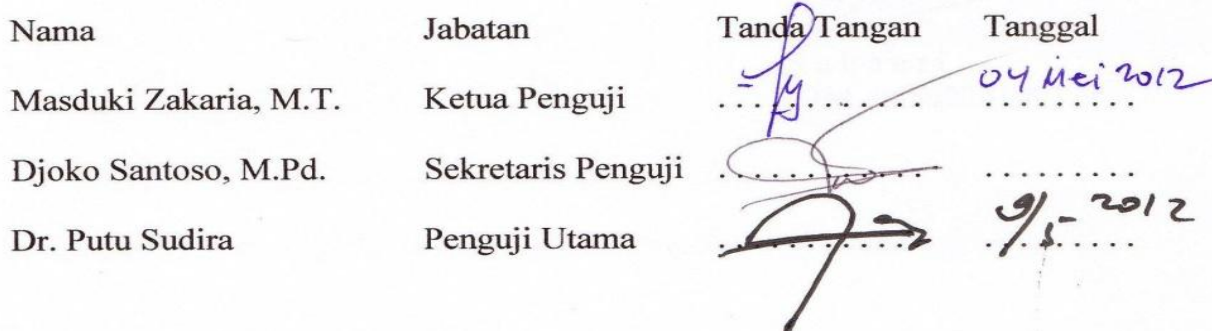 Nama Jabatan Tanda Tangan Tanggal
Masduki Zakaria, M.T. Ketua Penguji .............. 04 Mei 2012
Djoko Santoso, M.Pd. Sekretaris Penguji .............. .........
Dr. Putu Sudira Penguji Utama .............. 9/5-2012